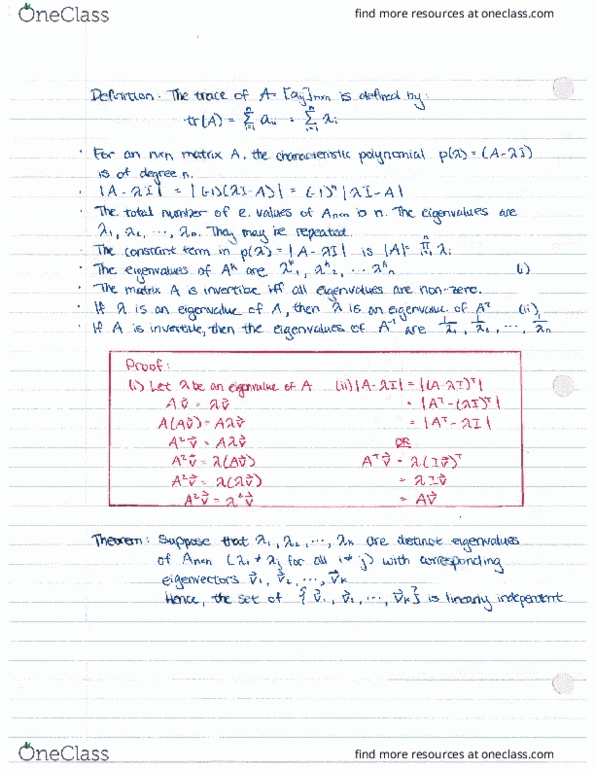 OneClass
find more resources at oneclass.com
Definition: The trace of A = [aij]nxn is defined by:
tr(A) = n∑i=1 aii = n∑i=1 λi
· For an nxn matrix A, the characteristic polynomial p(λ) = (A-λI)
is of degree n.
· |A-λI| = |(-1)(λI-A)| = (-1)ⁿ|λI-A|
· The total number of e.values of Anxn is n. The eigenvalues are
λ1, λ2, ..., λn. They may be repeated.
· The constant term in p(λ) = |A-λI| is |A| = n∏i=1 λi
· The eigenvalues of Aᵏ are λᵏ1, λᵏ2, ... λᵏn (i)
· The matrix A is invertible iff all eigenvalues are non-zero.
· If λ is an eigenvalue of A, then λ is an eigenvalue of Aᵀ (ii)
· If A is invertible, then the eigenvalues of A⁻¹ are 1/λ1, 1/λ2, ..., 1/λn
Proof:
(i) Let λ be an eigenvalue of A (ii) |A-λI| = |(A-λI)ᵀ|
Av⃗ = λv⃗ = |Aᵀ-(λI)ᵀ|
A(Av⃗) = Aλv⃗ = |Aᵀ-λI|
A²v⃗ = Aλv⃗ OR
A²v⃗ = λ(Av⃗) Aᵀv⃗ = λ(Iv⃗)ᵀ
A²v⃗ = λ(λv⃗) = λIv⃗
A²v⃗ = λ²v⃗ = Av⃗
Theorem: Suppose that λ1, λ2, ..., λk are distinct eigenvalues
of Anxn (λi ≠ λj for all i ≠ j) with corresponding
eigenvectors v⃗1, v⃗2, ..., v⃗k
Hence, the set of {v⃗1, v⃗2, ..., v⃗k} is linearly independent.
OneClass
find more resources at oneclass.com